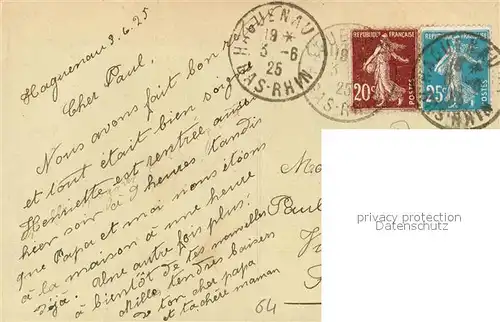 Haguenau 2.6.25
Cher Paul,
Nous avons fait bon
et tout était bien soigné
Henriette est rentrée
hier soir à 9 heures tandis
que Papa et moi nous étions
à la maison à une heure
déjà. Une autre fois plus.
à bientôt de tes nouvelles
Mille tendres baisers
de ton cher papa
et ta chère maman
HAGUENAU
19 *
3 -6
25
BAS-RHIN
RÉPUBLIQUE FRANÇAISE
20c
POSTES
RÉPUBLIQUE FRANÇAISE
25c
POSTES
Paul
64
privacy protection
Datenschutz